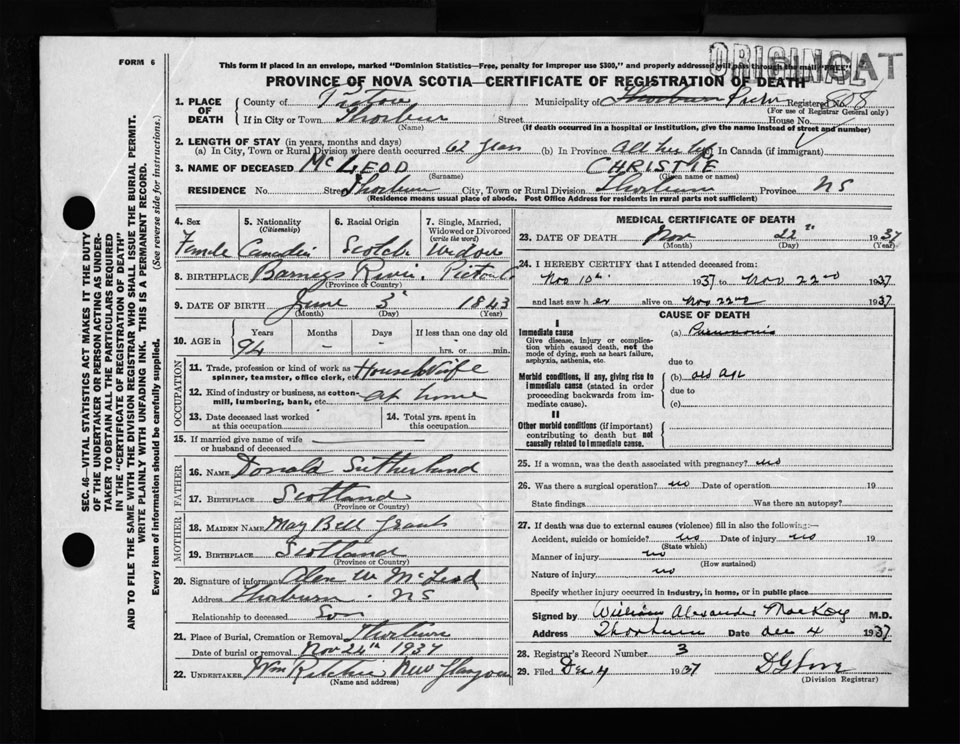 FORM 6
This form if placed in an envelope, marked "Dominion Statistics—Free, penalty for improper use $300," and properly addressed will pass through the mail "FREE"
ORIGINAL
PROVINCE OF NOVA SCOTIA—CERTIFICATE OF REGISTRATION OF DEATH
1. PLACE OF DEATH
County of Pictou Municipality of Thorburn Registered No. 808
(For use of Registrar General only)
If in City or Town Thorburn Street House No.
(Name) (If death occurred in a hospital or institution, give the name instead of street and number)
2. LENGTH OF STAY (in years, months and days)
(a) In City, Town or Rural Division where death occurred 62 years (b) In Province all her life In Canada (if immigrant)
3. NAME OF DECEASED McLEOD CHRISTIE
(Surname) (Given name or names)
RESIDENCE No. Street Thorburn City, Town or Rural Division Thorburn Province NS
(Residence means usual place of abode. Post Office Address for residents in rural parts not sufficient)
SEC. 46—VITAL STATISTICS ACT MAKES IT THE DUTY
OF THE UNDERTAKER OR PERSON ACTING AS UNDER-
TAKER TO OBTAIN ALL THE PARTICULARS REQUIRED
IN THE "CERTIFICATE OF REGISTRATION OF DEATH"
AND TO FILE THE SAME WITH THE DIVISION REGISTRAR WHO SHALL ISSUE THE BURIAL PERMIT.
WRITE PLAINLY WITH UNFADING INK. THIS IS A PERMANENT RECORD.
Every item of information should be carefully supplied. (See reverse side for instructions.)
4. Sex 5. Nationality 6. Racial Origin 7. Single, Married,
(Citizenship) Widowed or Divorced
(write the word)
Female Canadian Scotch Widow
8. BIRTHPLACE Barneys River Pictou Co
(Province or Country)
9. DATE OF BIRTH June 3 1843
(Month) (Day) (Year)
10. AGE in Years Months Days If less than one day old
94 - - hrs. or min.
OCCUPATION
11. Trade, profession or kind of work as Housewife
spinner, teamster, office clerk, etc.
12. Kind of industry or business, as cotton- at home
mill, lumbering, bank, etc.
13. Date deceased last worked 14. Total yrs. spent in
at this occupation this occupation
15. If married give name of wife
or husband of deceased
FATHER
16. NAME Donald Sutherland
17. BIRTHPLACE Scotland
(Province or Country)
MOTHER
18. MAIDEN NAME May Bell Grant
19. BIRTHPLACE Scotland
(Province or Country)
20. Signature of informant Alex W McLeod
Address Thorburn NS
Relationship to deceased Son
21. Place of Burial, Cremation or Removal Thorburn
Date of burial or removal Nov 24th 1937
22. UNDERTAKER Wm Ritchie New Glasgow
(Name and address)
MEDICAL CERTIFICATE OF DEATH
23. DATE OF DEATH Nov 22nd 1937
(Month) (Day) (Year)
24. I HEREBY CERTIFY that I attended deceased from:
Nov 10th 1937 to Nov 22nd 1937
and last saw her alive on Nov 22nd 1937
CAUSE OF DEATH
I
Immediate cause (a) Pneumonia
Give disease, injury or complica-
tion which caused death, not the
mode of dying, such as heart failure,
asphyxia, asthenia, etc. due to
Morbid conditions, if any, giving rise to (b) old age
immediate cause (stated in order due to
proceeding backwards from im-
mediate cause). (c)
II
Other morbid conditions (if important)
contributing to death but not
causally related to immediate cause.
25. If a woman, was the death associated with pregnancy? no
26. Was there a surgical operation? no Date of operation 19
State findings Was there an autopsy?
27. If death was due to external causes (violence) fill in also the following:—
Accident, suicide or homicide? no Date of injury no 19
(State which)
Manner of injury no
(How sustained)
Nature of injury no
Specify whether injury occurred in industry, in home, or in public place
Signed by William Alexander MacKay M.D.
Address Thorburn Date Dec 4 1937
28. Registrar's Record Number 3
29. Filed Dec 4 1937
(Division Registrar)